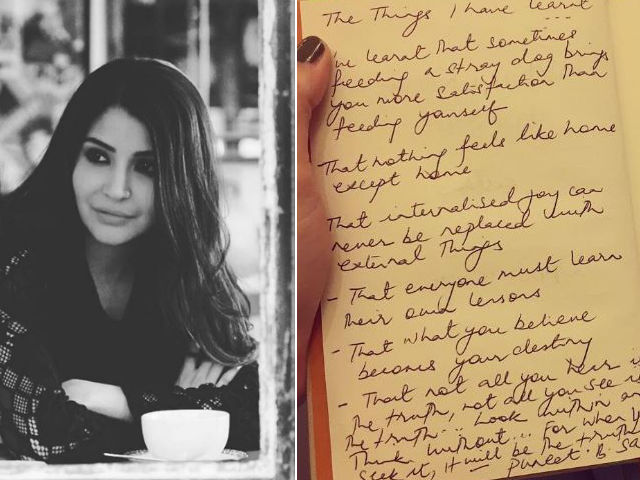 The Things I have learnt
I've learnt that sometimes
feeding a stray dog brings
you more satisfaction than
feeding yourself
That nothing feels like home
except home
That internalised joy can
never be replaced with
external things
- That everyone must learn
their own lessons
- That what you believe
becomes your destiny
- That not all you hear is
the truth, not all you see is
the truth... Look within and
Think without... for when you
seek it, it will be the truth
- Puneet. B. Sa